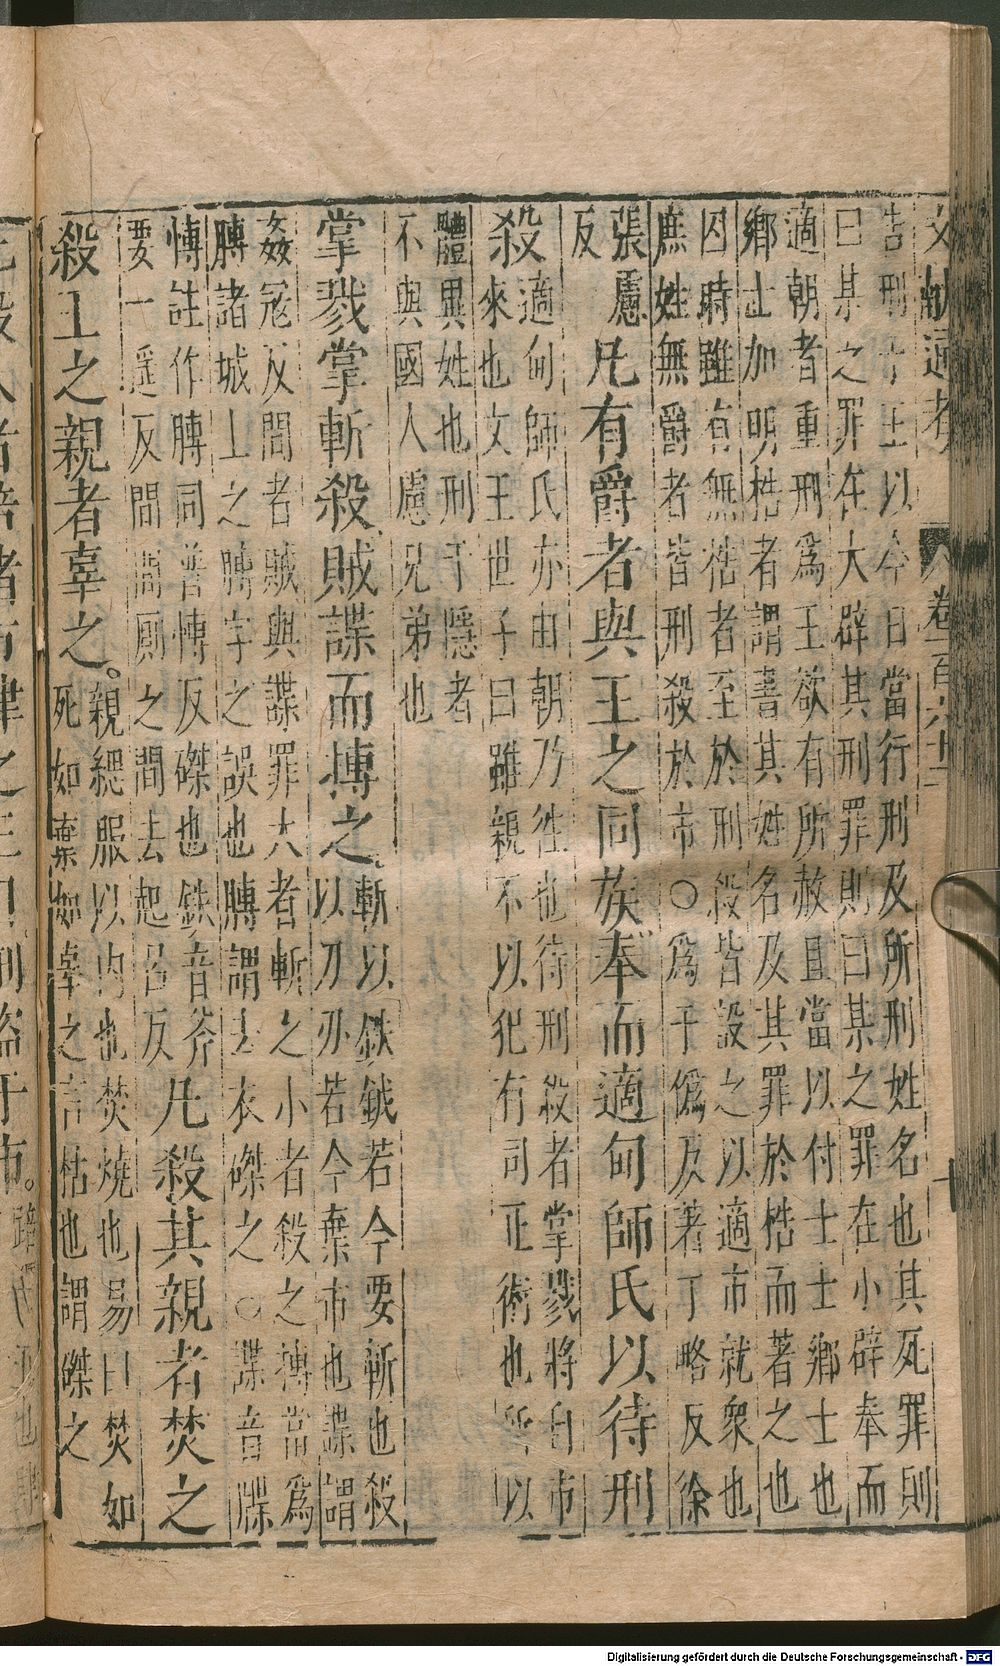 文獻通考 卷一百六十二
告刑于王以今日當行刑及所刑姓名也其死罪則
曰某之罪在大辟其刑罪則曰某之罪在小辟奉而
適朝者重刑爲王欲有所赦且當以付士士鄉士也
鄉士加明梏者謂書其姓名及其罪於梏而著之也
囚時雖有無梏者至於刑殺皆設之以適市就衆也
庶姓無爵者皆刑殺於市○爲于僞反著丁略反徐
張慮反
凡有爵者與王之同族奉而適甸師氏以待刑
殺
適甸師氏亦由朝乃徃也待刑殺者掌戮將自市
來也文王世子曰雖親不以犯有司正術也所以
體異姓也刑于隱者
不與國人慮兄弟也
掌戮掌斬殺賊諜而搏之
斬以鈇鉞若今要斬也殺
以刀刃若今棄市也諜謂
姦寇反間者賊與諜罪大者斬之小者殺之搏當爲
膊諸城上之膊字之誤也膊謂去衣磔之○諜音牒
慱註作膊同普慱反磔也鈇音斧
要一遥反間間厠之間去起呂反
凡殺其親者焚之
殺王之親者辜之
親緦服以内也焚燒也易曰焚如
死如棄如辜之言枯也謂磔之
Digitalisierung gefördert durch die Deutsche Forschungsgemeinschaft - DFG